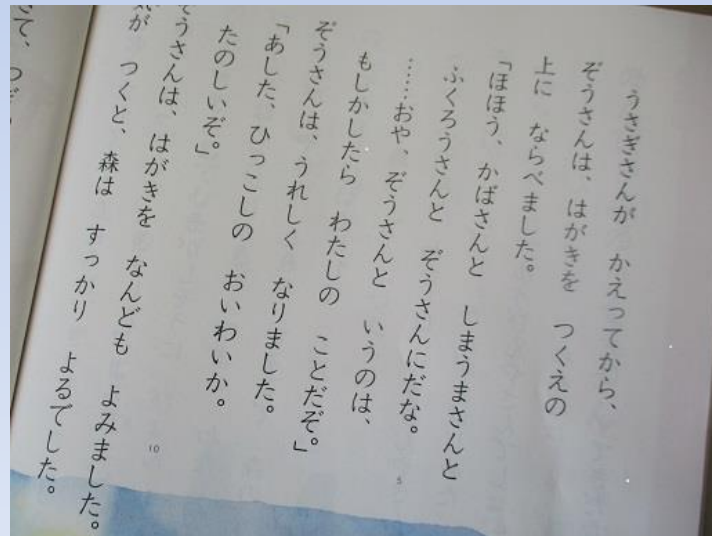 うさぎさんが　かえってから、
ぞうさんは、はがきを　つくえの
上に　ならべました。
「ほほう、かばさんと　しまうまさんと
ふくろうさんと　ぞうさんにだな。
……おや、ぞうさんと　いうのは、
もしかしたら　わたしの　ことだぞ。」
ぞうさんは、うれしく　なりました。
「あした、ひっこしの　おいわいか。
たのしいぞ。」
ぞうさんは、はがきを　なんども　よみました。
気が　つくと、森は　すっかり　よるでした。
5
10